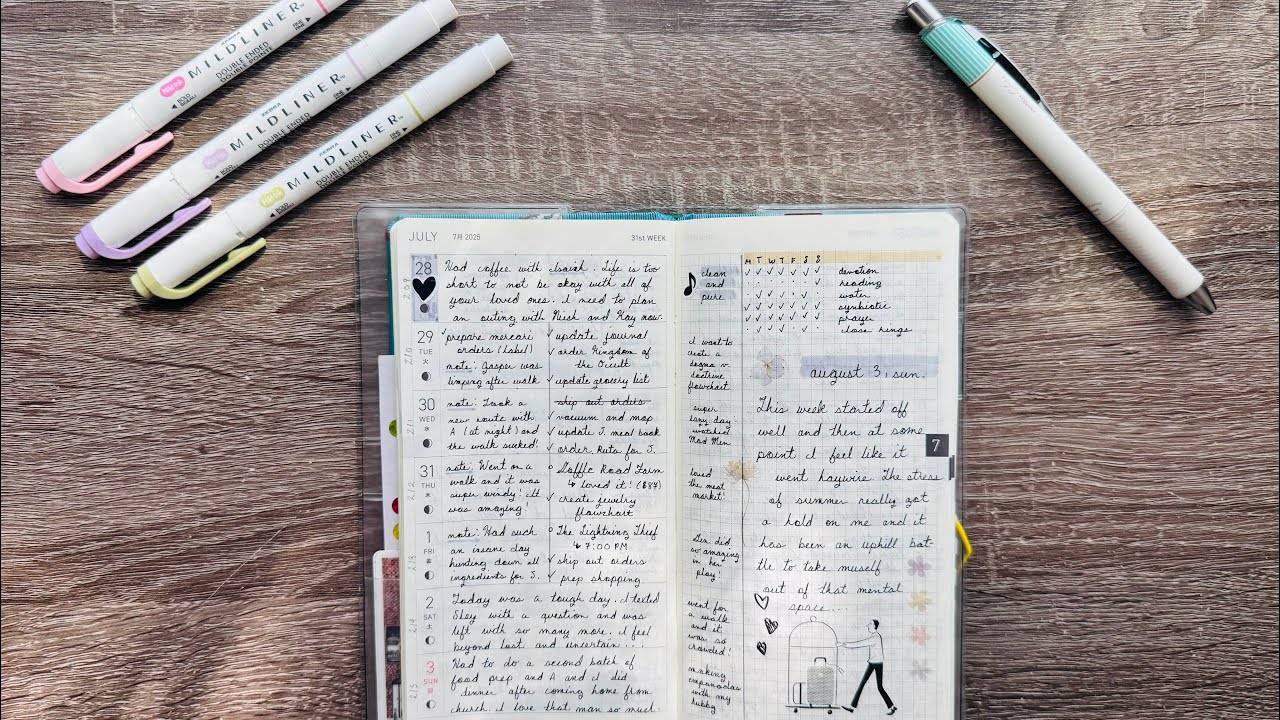 ZEBRA
MILDLINER
DOUBLE ENDED
DOUBLE POINTE
ZEBRA
MILDLINER
DOUBLE ENDED
DOUBLE POINTE
ZEBRA
MILDLINER
DOUBLE ENDED
DOUBLE POINTE
JULY 7月 2025 31st WEEK
28
Had coffee with Isaiah. Life is too
short to not be okay with all of
your loved ones. I need to plan
an outing with Nesh and Kay now.
209
29
TUE
火
✓ prepare mercari
orders (label)
note: Gasper was
limping after walk
✓ update journal
✓ order Kingdom of
the Occult
✓ update grocery list
210
30
WED
水
note: Took a
new route with
A (at night) and
the walk sucked!
ship out orders
✓ vacuum and mop
✓ update J. meal book
✓ order Ruta for J.
211
31
THU
木
note: Went on a
walk and it was
super windy! It
was amazing!
Raffle Road Farm
↳ loved it! ($87)
✓ create jewelry
flowchart
212
1
FRI
金
note: Had such
an insane day
hunting down all
ingredients for J.
The Lightning Thief
↳ 7:00 PM
✓ ship out orders
✓ prep shopping
213
2
SAT
土
Today was a tough day. I texted
Stay with a question and was
left with so many more. I feel
beyond lost and uncertain...
214
3
SUN
日
Had to do a second batch of
food prep and A and I did
dinner after coming home from
church. I love that man so much.
215
clean
and
pure
M T W T F S S
devotion
reading
water
synbiotic
prayer
close rings
I want to
create a
dogma v.
doctrine
flowchart
super
lazy day
watched
Mad Men
loved
the meat
market!
did
so amazing
in her
play!
went for
a walk
and it
was so
crowded!
making
empanadas
with my
hubby
august 3, sun.
This week started off
well and then at some
point I feel like it
went haywire. The stress
of summer really got
a hold on me and it
has been an uphill bat-
tle to take myself
out of that mental
space...
7